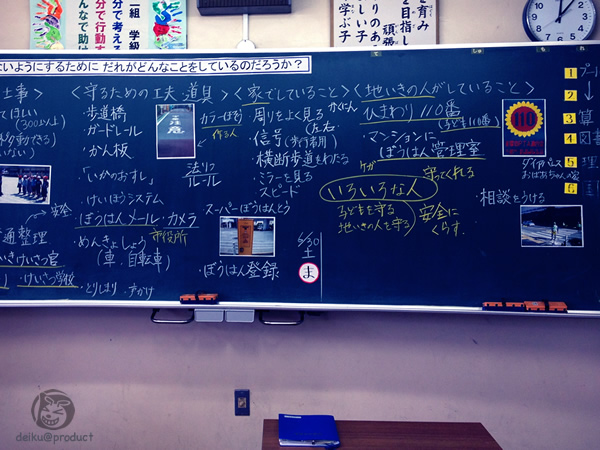 一組 学級
分で考える
分で行動す
んなで助け
を目指し
育み
頑張
りのあ
しい子
学ぶ子
ないようにするために だれがどんなことをしているのだろうか？
士事＞
てほしい
(300以上)
安全
通整理
いきけいさつ官
・けいさつ学校
＜守るための工夫・道具＞
・歩道橋
・ガードレール
・かん板
「いかのおすし」
・けいほうシステム
・ぼうはんメール・カメラ
市役所
・めんきょしょう
(車・自転車)
・とりしまり
カラーほそう
作る人
法りつ
ルール
スーパーぼうはんとう
・ぼうはん登録
＜家でしていること＞
・周りをよく見る
かくにん
(左右)
・信号(歩行者用)
・横断歩道をわたる
・ミラーを見る
・スピード
6/30
土
ま
＜地いきの人がしていること＞
ひまわり110番
(子ども110番)
・マンションに
ぼうはん管理室
守ってくれる
いろいろな人
子どもを守る
地いきの人を守る
安全に
くらす
110
・相談をうける
1 プー
↓
2 さ
3 算
4 図書
5 理
6
deiku@product